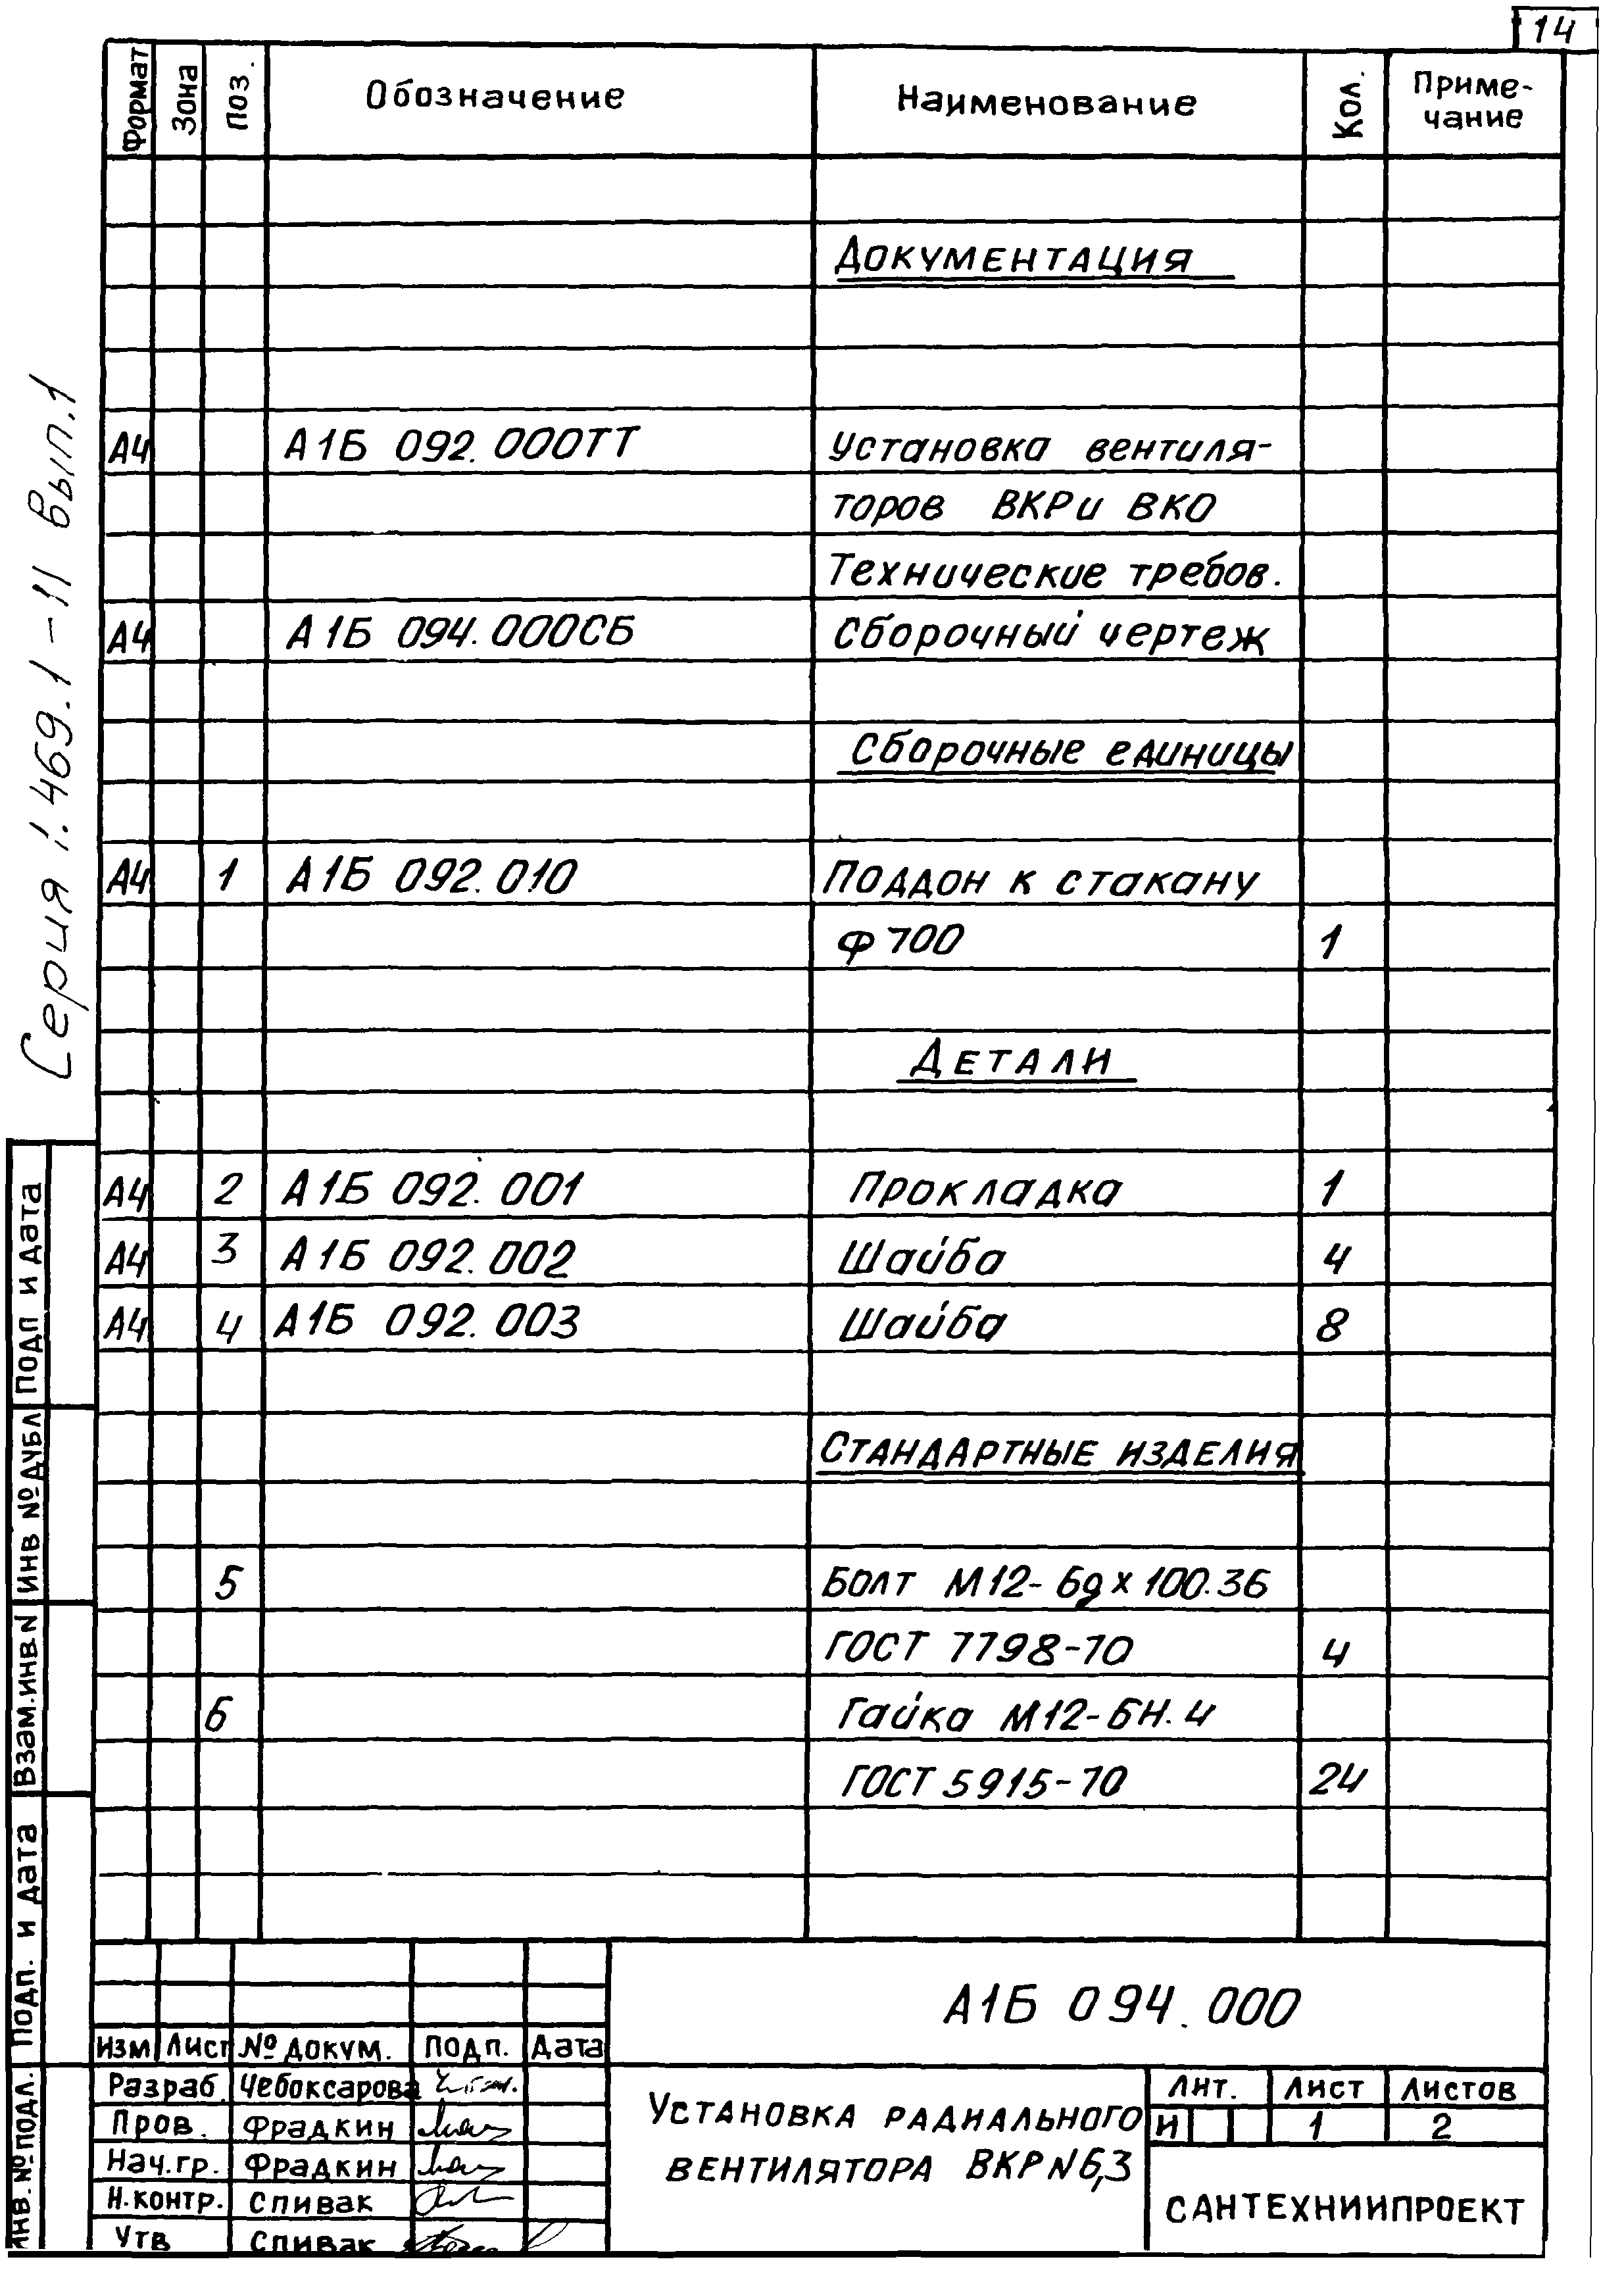 14
Формат Зона Поз. Обозначение Наименование Кол. Приме-
чание
Документация
А4 А1Б 092.000ТТ Установка вентиля-
торов ВКР и ВКО
Технические требов.
А4 А1Б 094.000СБ Сборочный чертеж
Сборочные единицы
А4 1 А1Б 092.010 Поддон к стакану
ф 700 1
Детали
А4 2 А1Б 092.001 Прокладка 1
А4 3 А1Б 092.002 Шайба 4
А4 4 А1Б 092.003 Шайба 8
Стандартные изделия
5 Болт М12-6g х 100.36
ГОСТ 7798-70 4
6 Гайка М12-6Н.4
ГОСТ 5915-70 24
Серия 1.469.1-11 Вып.1
Подп и дата
Инв № дубл
Взам.инв.N
Подп. и дата
Инв. № подл.
А1Б 094.000
Изм Лист № докум. Подп. Дата
Разраб Чебоксарова
Пров. Фрадкин
Нач.гр. Фрадкин
Н.контр. Спивак
Утв Спивак
Установка радиального
вентилятора ВКР N 6,3
Лит. Лист Листов
И 1 2
САНТЕХНИИПРОЕКТ